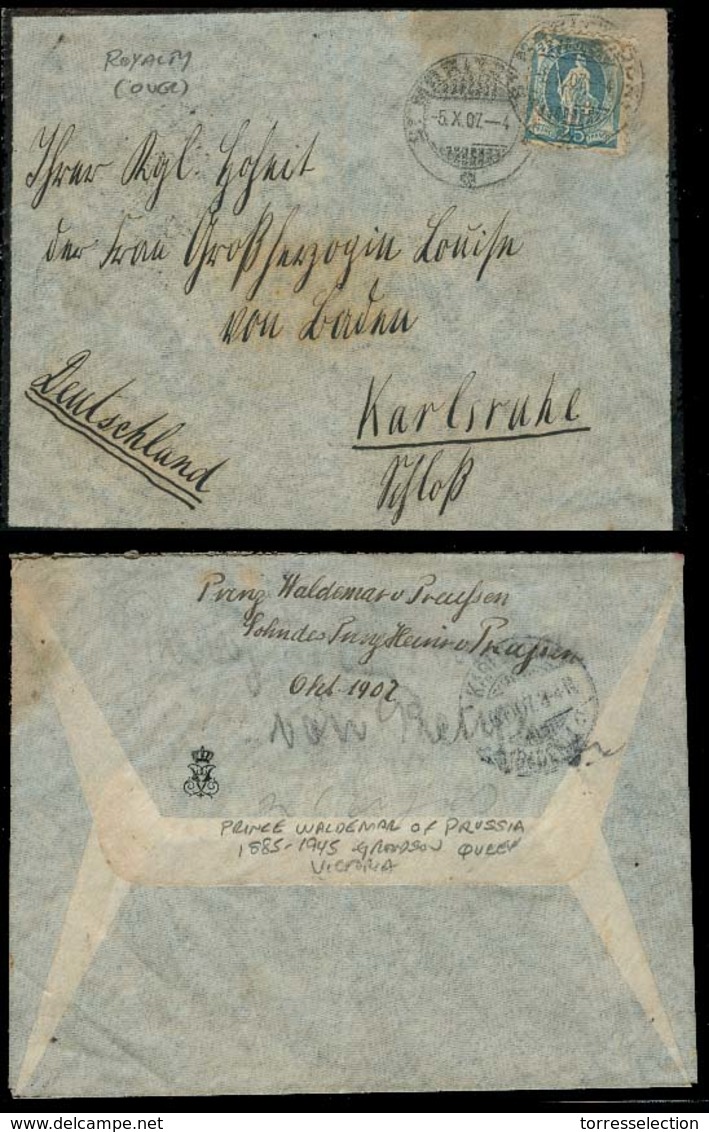 ROYALTY
(OVER)
-5.X.07.-4
25
Ihrer Kgl. Hoheit
der Frau Großherzogin Louise
von Baden
Karlsruhe
Schloß
Deutschland
Prinz Waldemar v Preußen
Sohn des Prinz Heinr v Preußen
Okt 1907
von
PRINCE WALDEMAR OF PRUSSIA
1885-1945 GRANDSON QUEEN
VICTORIA
torresselection